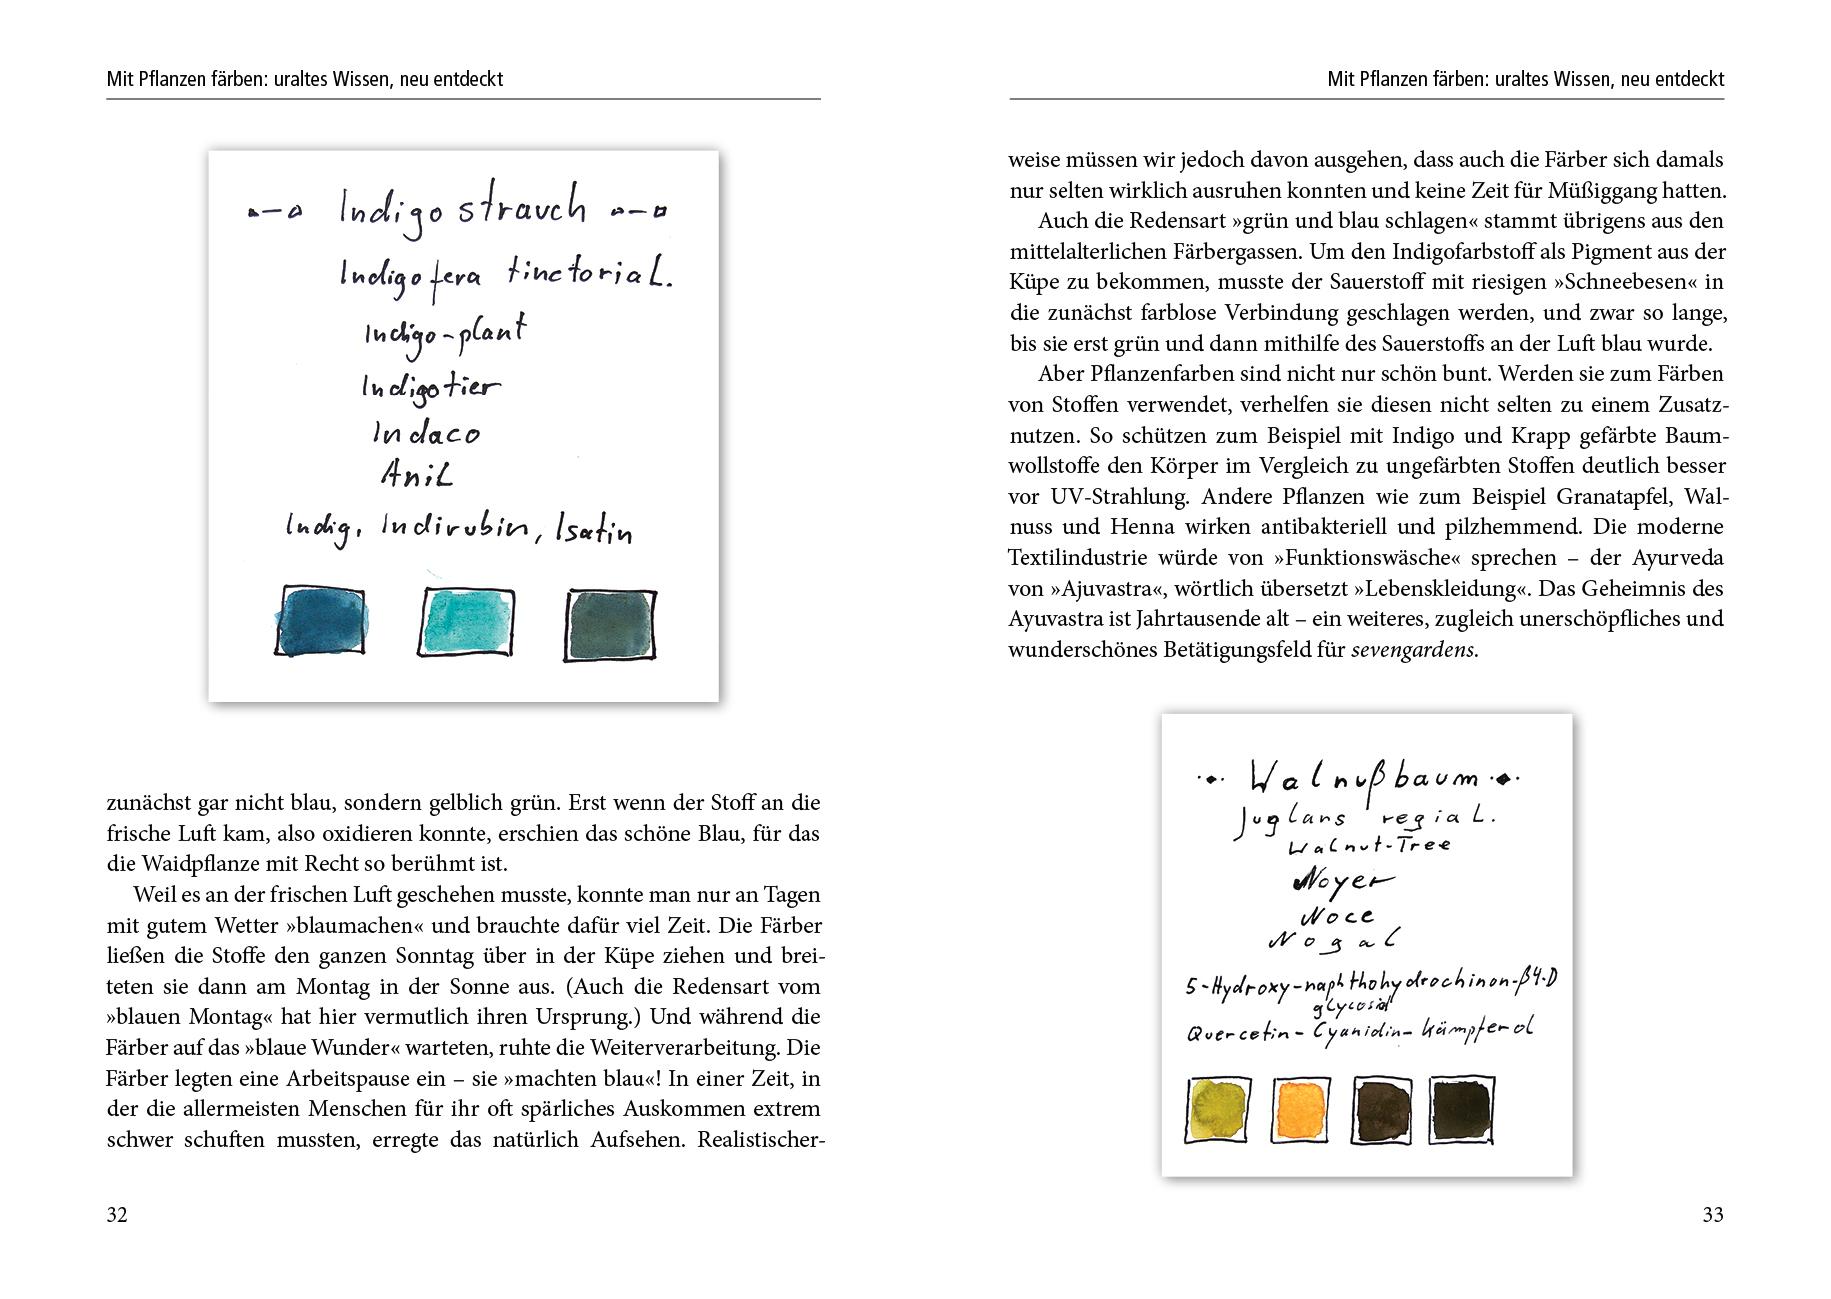 Mit Pflanzen färben: uraltes Wissen, neu entdeckt
Indigostrauch
Indigofera tinctoria L.
Indigo-plant
Indigotier
Indaco
Anil
Indig, Indirubin, Isatin
zunächst gar nicht blau, sondern gelblich grün. Erst wenn der Stoff an die
frische Luft kam, also oxidieren konnte, erschien das schöne Blau, für das
die Waidpflanze mit Recht so berühmt ist.
Weil es an der frischen Luft geschehen musste, konnte man nur an Tagen
mit gutem Wetter »blaumachen« und brauchte dafür viel Zeit. Die Färber
ließen die Stoffe den ganzen Sonntag über in der Küpe ziehen und brei-
teten sie dann am Montag in der Sonne aus. (Auch die Redensart vom
»blauen Montag« hat hier vermutlich ihren Ursprung.) Und während die
Färber auf das »blaue Wunder« warteten, ruhte die Weiterverarbeitung. Die
Färber legten eine Arbeitspause ein – sie »machten blau«! In einer Zeit, in
der die allermeisten Menschen für ihr oft spärliches Auskommen extrem
schwer schuften mussten, erregte das natürlich Aufsehen. Realistischer-
32
Mit Pflanzen färben: uraltes Wissen, neu entdeckt
weise müssen wir jedoch davon ausgehen, dass auch die Färber sich damals
nur selten wirklich ausruhen konnten und keine Zeit für Müßiggang hatten.
Auch die Redensart »grün und blau schlagen« stammt übrigens aus den
mittelalterlichen Färbergassen. Um den Indigofarbstoff als Pigment aus der
Küpe zu bekommen, musste der Sauerstoff mit riesigen »Schneebesen« in
die zunächst farblose Verbindung geschlagen werden, und zwar so lange,
bis sie erst grün und dann mithilfe des Sauerstoffs an der Luft blau wurde.
Aber Pflanzenfarben sind nicht nur schön bunt. Werden sie zum Färben
von Stoffen verwendet, verhelfen sie diesen nicht selten zu einem Zusatz-
nutzen. So schützen zum Beispiel mit Indigo und Krapp gefärbte Baum-
wollstoffe den Körper im Vergleich zu ungefärbten Stoffen deutlich besser
vor UV-Strahlung. Andere Pflanzen wie zum Beispiel Granatapfel, Wal-
nuss und Henna wirken antibakteriell und pilzhemmend. Die moderne
Textilindustrie würde von »Funktionswäsche« sprechen – der Ayurveda
von »Ajuvastra«, wörtlich übersetzt »Lebenskleidung«. Das Geheimnis des
Ayuvastra ist Jahrtausende alt – ein weiteres, zugleich unerschöpfliches und
wunderschönes Betätigungsfeld für sevengardens.
Walnußbaum
Juglans regia L.
Walnut-Tree
Noyer
Noce
Nogal
5-Hydroxy-naphthohydrochinon-β4-D
glycosid
Quercetin-Cyanidin-Kämpferol
33